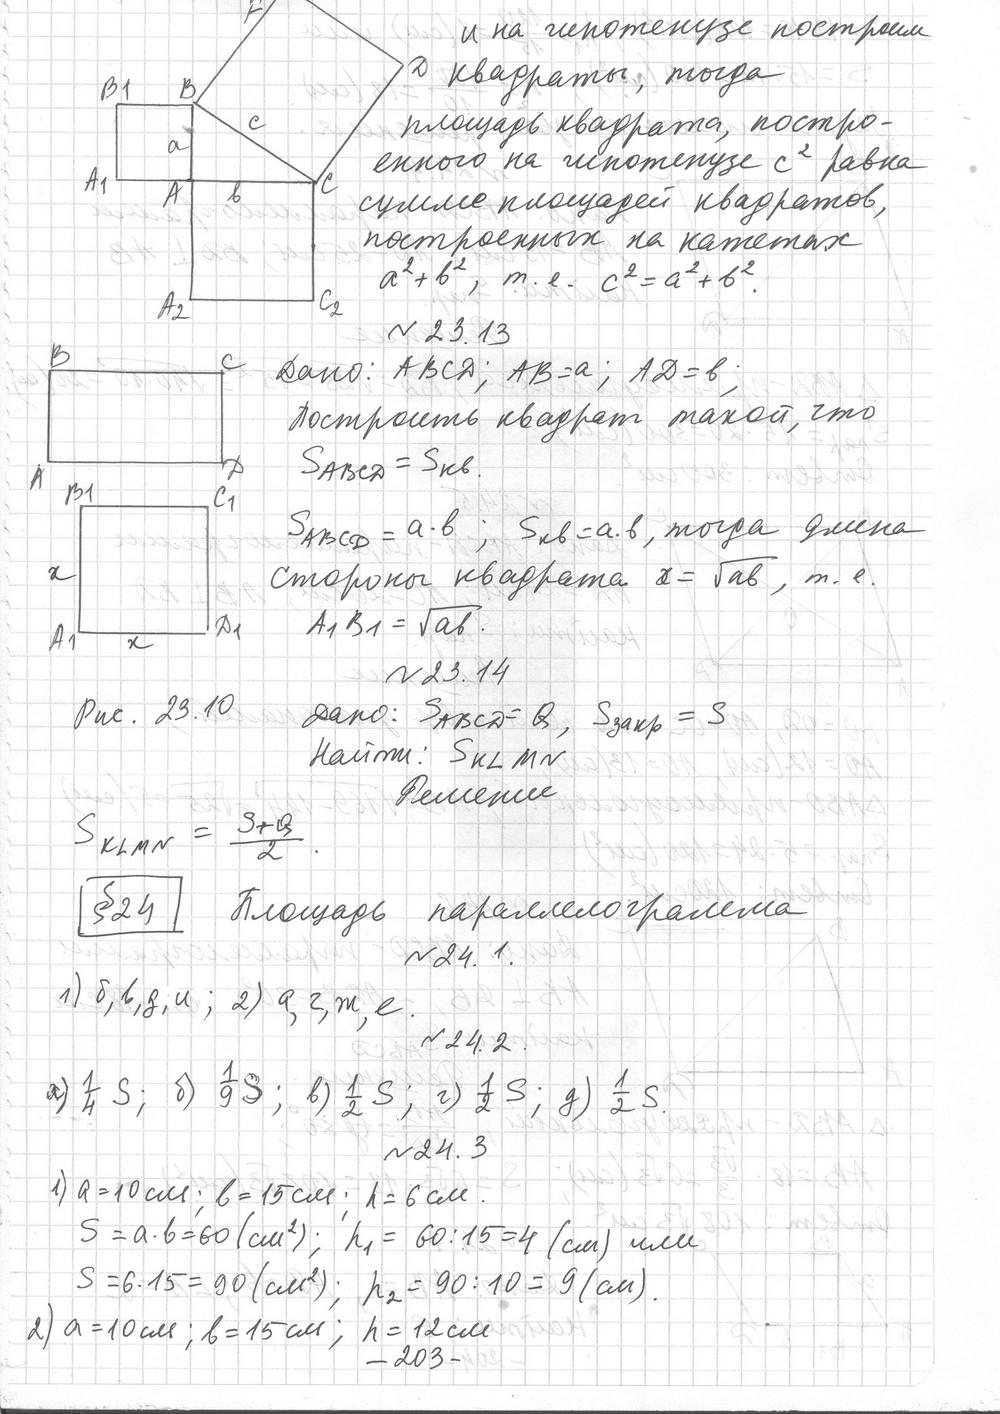 и на гипотенузе построим
D квадраты, тогда
B1 B c
a
площадь квадрата, постро-
енного на гипотенузе c² равна
A1 A в C
сумме площадей квадратов,
построенных на катетах
a²+в², т.е. c²=a²+в².
A2 C2
№23.13
B C
Дано: ABCD; AB=a; AD=в;
Построить квадрат такой, что
S ABCD = S кв.
A D
B1 C1
S ABCD = a·в; S кв=a.в, тогда длина
x
стороны квадрата x=√aв, т.е.
A1 x D1
A1B1=√aв.
№23.14
Рис. 23.10 Дано: S ABCD=Q, S закр = S
Найти: S KLMN
Решение
S KLMN = S+Q/2.
§24 Площадь параллелограмма
№24.1.
1) б,в,д,и; 2) а,г,ж,е.
№24.2.
а) 1/4 S; б) 1/9 S; в) 1/2 S; г) 1/2 S; д) 1/2 S.
№24.3
1) a=10см; в=15см; h=6см.
S=a·в=60(см²); h1= 60:15=4 (см) или
S=6·15=90(см²); h2=90:10=9(см).
2) a=10см; в=15см; h=12см
-203-